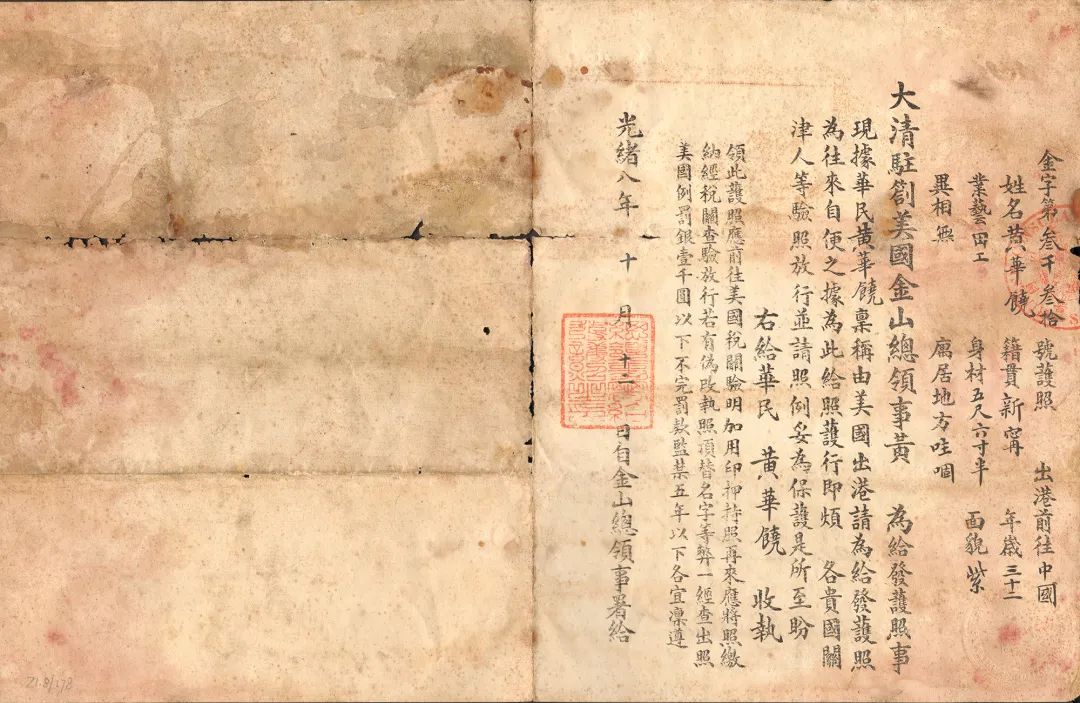 金字第叁千叁拾 號護照 出港前往中國
姓名黄華饒 籍貫新甯 年歲三十二
業藝田工 身材五尺六寸半 面貌紫
異相無 寓居地方哇嗰
大清駐劄美國金山總領事黄 為給發護照事
現據華民黄華饒稟稱由美國出港請為給發護照
為往來自便之據為此給照護行即煩 各貴國關
津人等驗照放行並請照例妥為保護是所至盼
右給華民 黄華饒 收執
領此護照應前往美國稅關驗明加用印押持照再來應將照繳
納經稅關查驗放行若有偽改執照頂替名字等弊一經查出照
美國例罰銀壹千圓以下不完罰款監禁五年以下各宜凜遵
光緒八年 十 月 十二 日自金山總領事署給
21.8/178